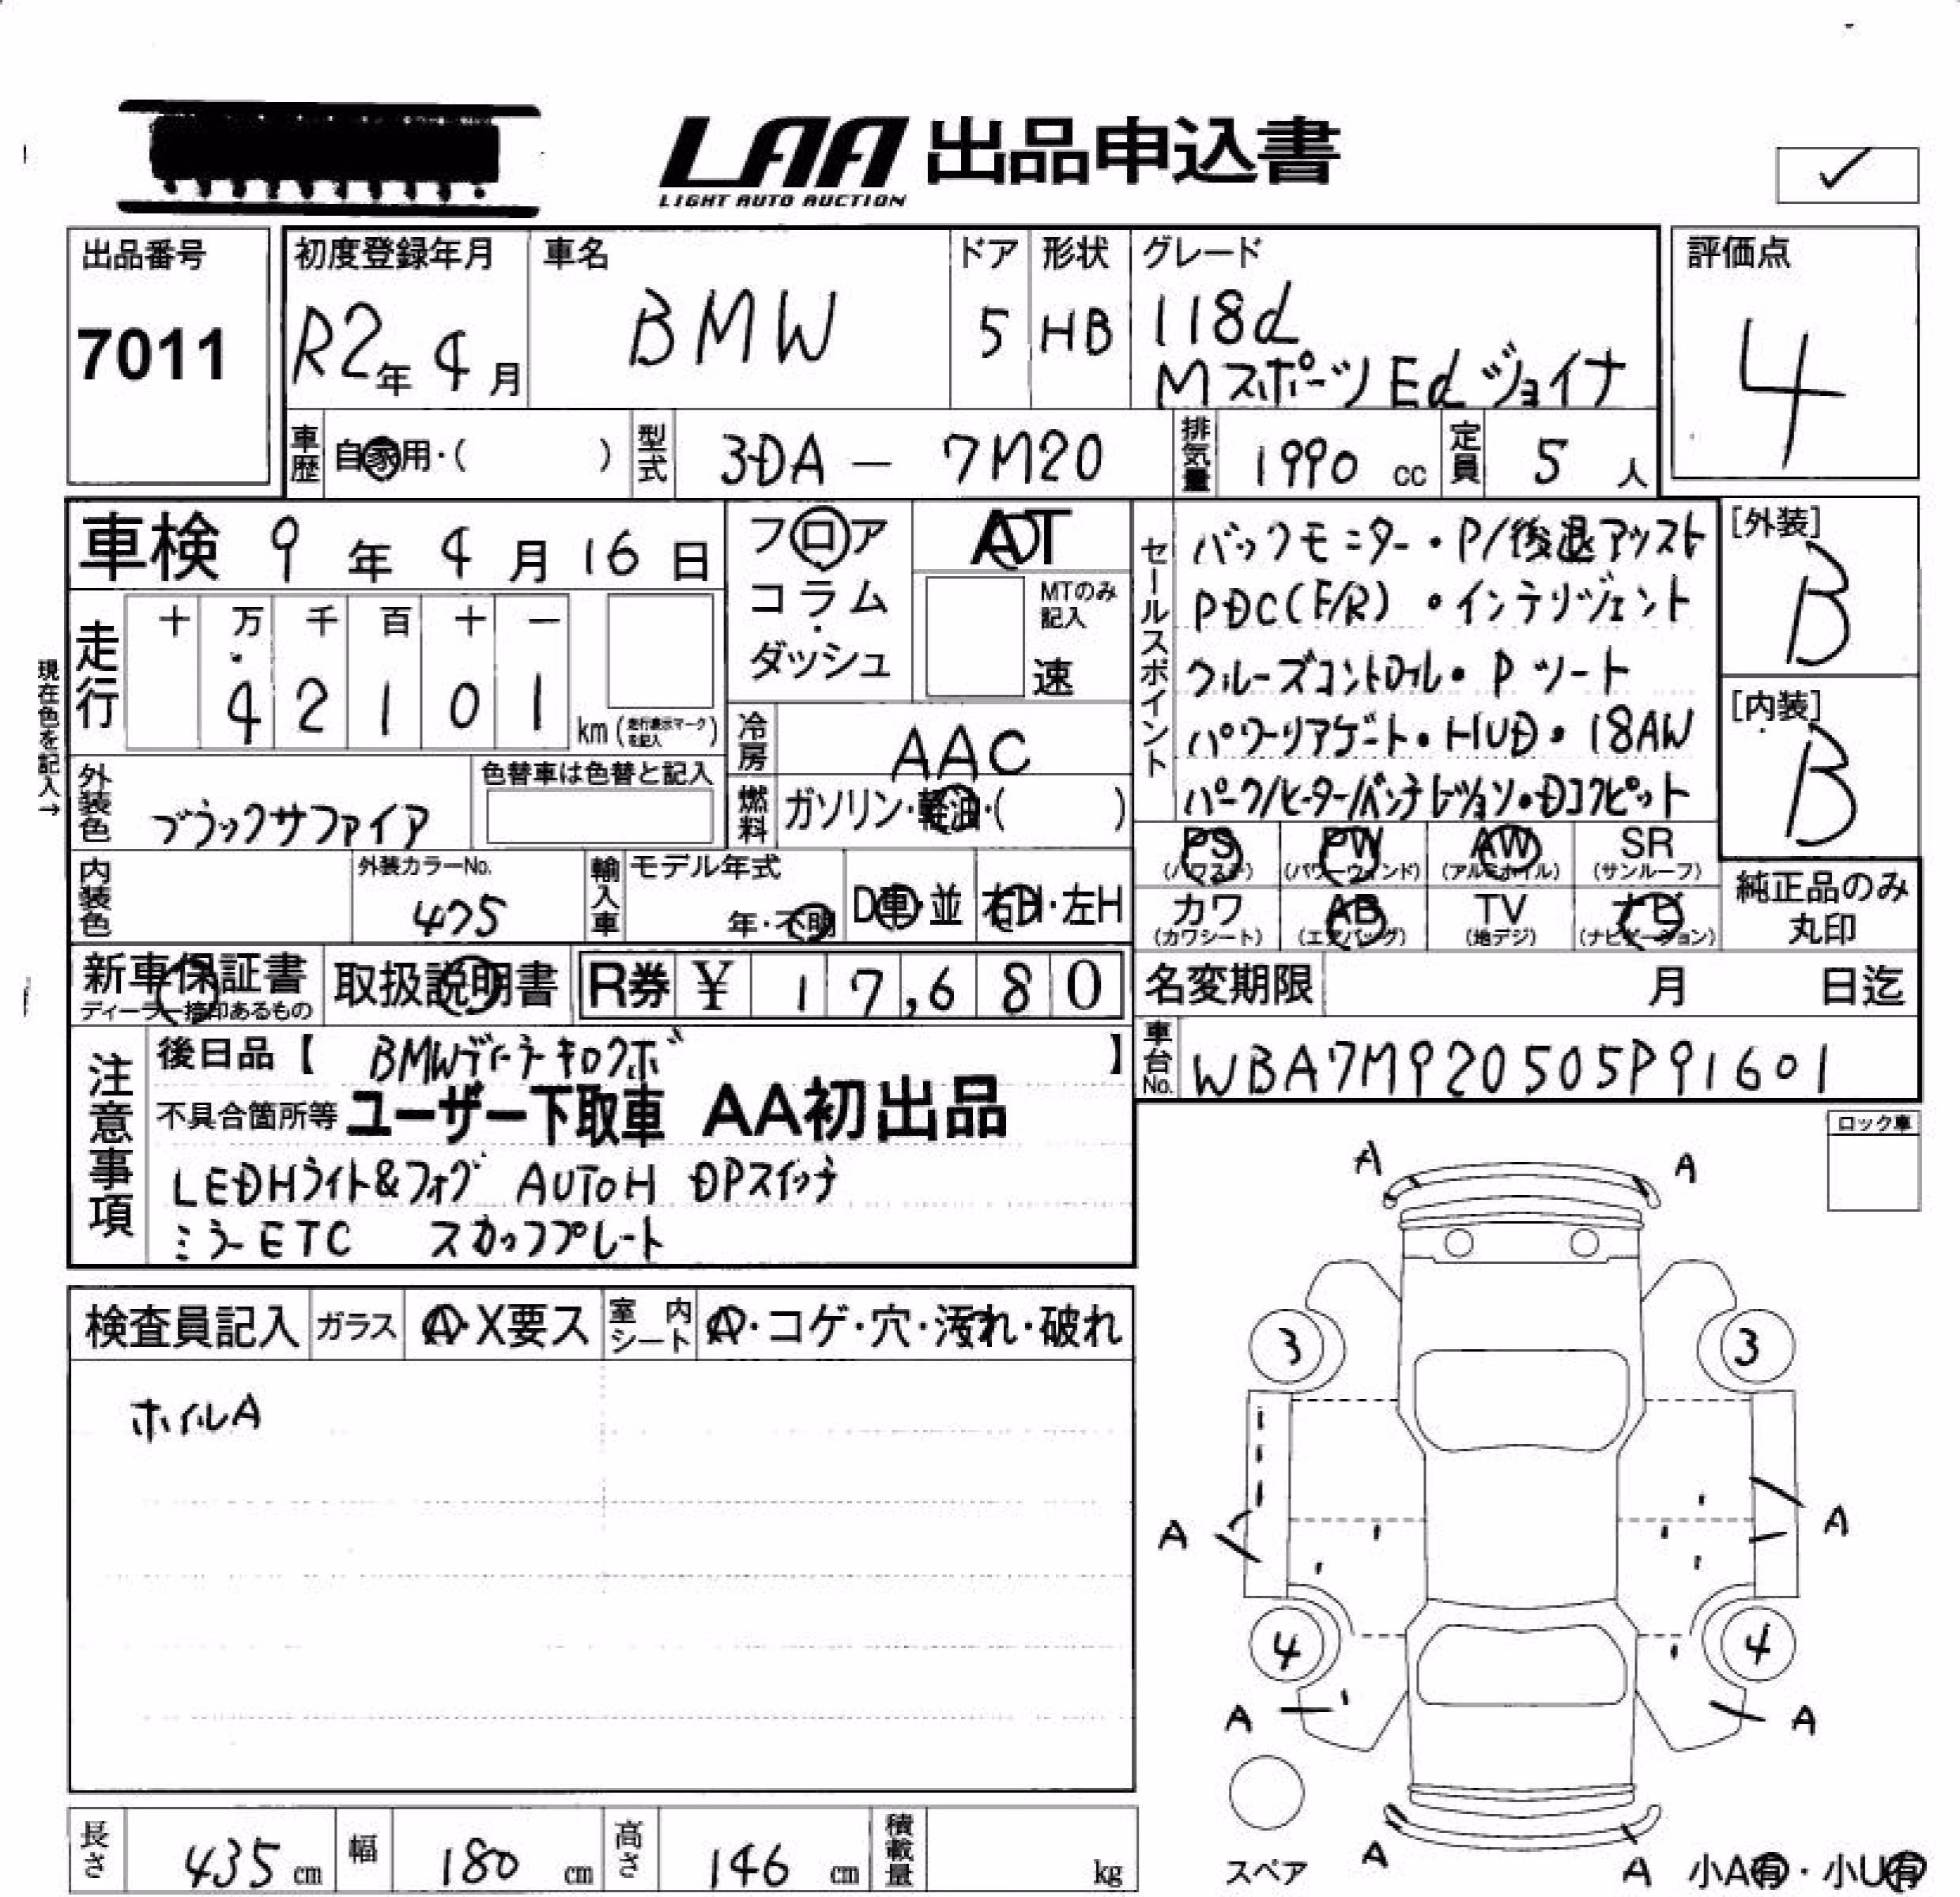 LAA 出品申込書
LIGHT AUTO AUCTION
出品番号
7011
初度登録年月
R2年 4月
車名
BMW
ドア
5
形状
HB
グレード
118d
Mスポーツ Ed ジョイナ
評価点
4
車歴
自家用・( )
型式
3DA - 7M20
排気量
1990 cc
定員
5 人
車検 9年 4月 16日
走行
十 万 千 百 十 一
4 2 1 0 1
km (走行表示マークを記入)
現在色を記入→
フロア
コラム
・
ダッシュ
AT
MTのみ
記入
速
冷房
AAC
燃料
ガソリン・軽油・( )
セールスポイント
バックモニター・P/後退アシスト
PDC(F/R)・インテリジェント
クルーズコントロール・Pシート
パワーリアゲート・HUD・18AW
パーク/ヒーター/ベンチレーション・Dコクピット
[外装]
B
[内装]
B
外装色
ブラックサファイア
色替車は色替と記入
内装色
外装カラーNo.
475
輸入車
モデル年式
年・不明
D車・並
右H・左H
PS
(パワステ)
PW
(パワーウィンド)
AW
(アルミホイル)
SR
(サンルーフ)
カワ
(カワシート)
AB
(エアバッグ)
TV
(地デジ)
ナビ
(ナビゲーション)
純正品のみ
丸印
新車保証書
ディーラー捺印あるもの
取扱説明書
R券 ¥ 17,680
名変期限 月 日迄
車台No.
WBA7M920505P91601
注意事項
後日品【 BMWディーラーキロクボ 】
不具合箇所等 ユーザー下取車 AA初出品
LEDHライト&フォグ AUTOH DPスイッチ
ミラーETC スカッフプレート
ロック車
検査員記入
ガラス
A・X要ス
室内シート
A・コゲ・穴・汚れ・破れ
ホイルA
A A
3 3
A A
4 4
A A
A A
スペア
小A有・小U有
長さ 435 cm
幅 180 cm
高さ 146 cm
積載量 kg